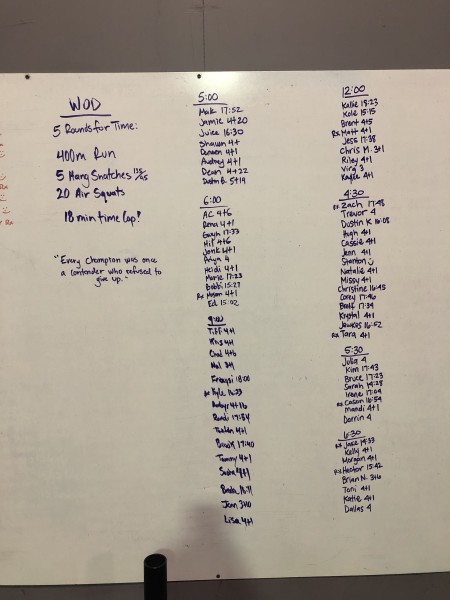 WOD
5 Rounds for Time:
400m Run
5 Hang Snatches 135/95
20 Air Squats
18 min time Cap!
"Every Champion was once
a contender who refused to
give up."
5:00
Mak 17:52
Jamie 4+20
Juice 16:30
Shawn 4+
4+1
Audrey 4+1
Dean 4+22
Dustin B. 5+14
6:00
A.C. 4+6
Rena 4+1
17:33
4+6
4+1
4
Heidi 4+1
Marie 17:23
Bobbi 15:27
Rx 4+1
Ed 15:02
9:00
Tiff 4+1
Kris 4+1
Chad 4+6
18:00
Rx Kyle
Randi
17:40
Tammy 4+1
Sasha 4+1
Jenn
Lisa 4+1
12:00
Kallie 18:23
Kole 15:15
Brent 4+5
Rx Matt 4+1
Jess 17:38
Chris M. 3+1
Riley 4+1
3
Kayla 4+1
4:30
Rx Zach 17:48
Trevor 4
Dustin K 16:08
Hugh 4+1
Cassie 4+1
Jean 4+1
Stanton
Natalie 4+1
Missy 4+1
Christine 16:45
Corey 17:46
17:34
Krystal 4+1
16:52
Rx Tara 4+1
5:30
Julia 4
Kim 17:43
Bruce 17:23
Sarah 14:28
Irene 17:09
Rx Cason 16:54
Mandi 4+1
Darrin 4
6:30
Rx Jake 14:33
Kelly 4+1
Morgan 4+1
Rx Hector 15:42
Brian N. 3+6
Toni 4+1
Katie 4+1
Dallas 4